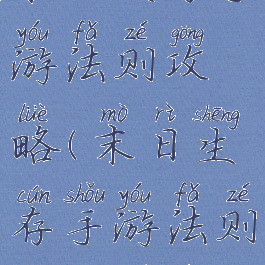 yóu fǎ zé gōng
游法则攻
lüè mò rì shēng
略(末日生
cún shǒu yóu fǎ zé
存手游法则